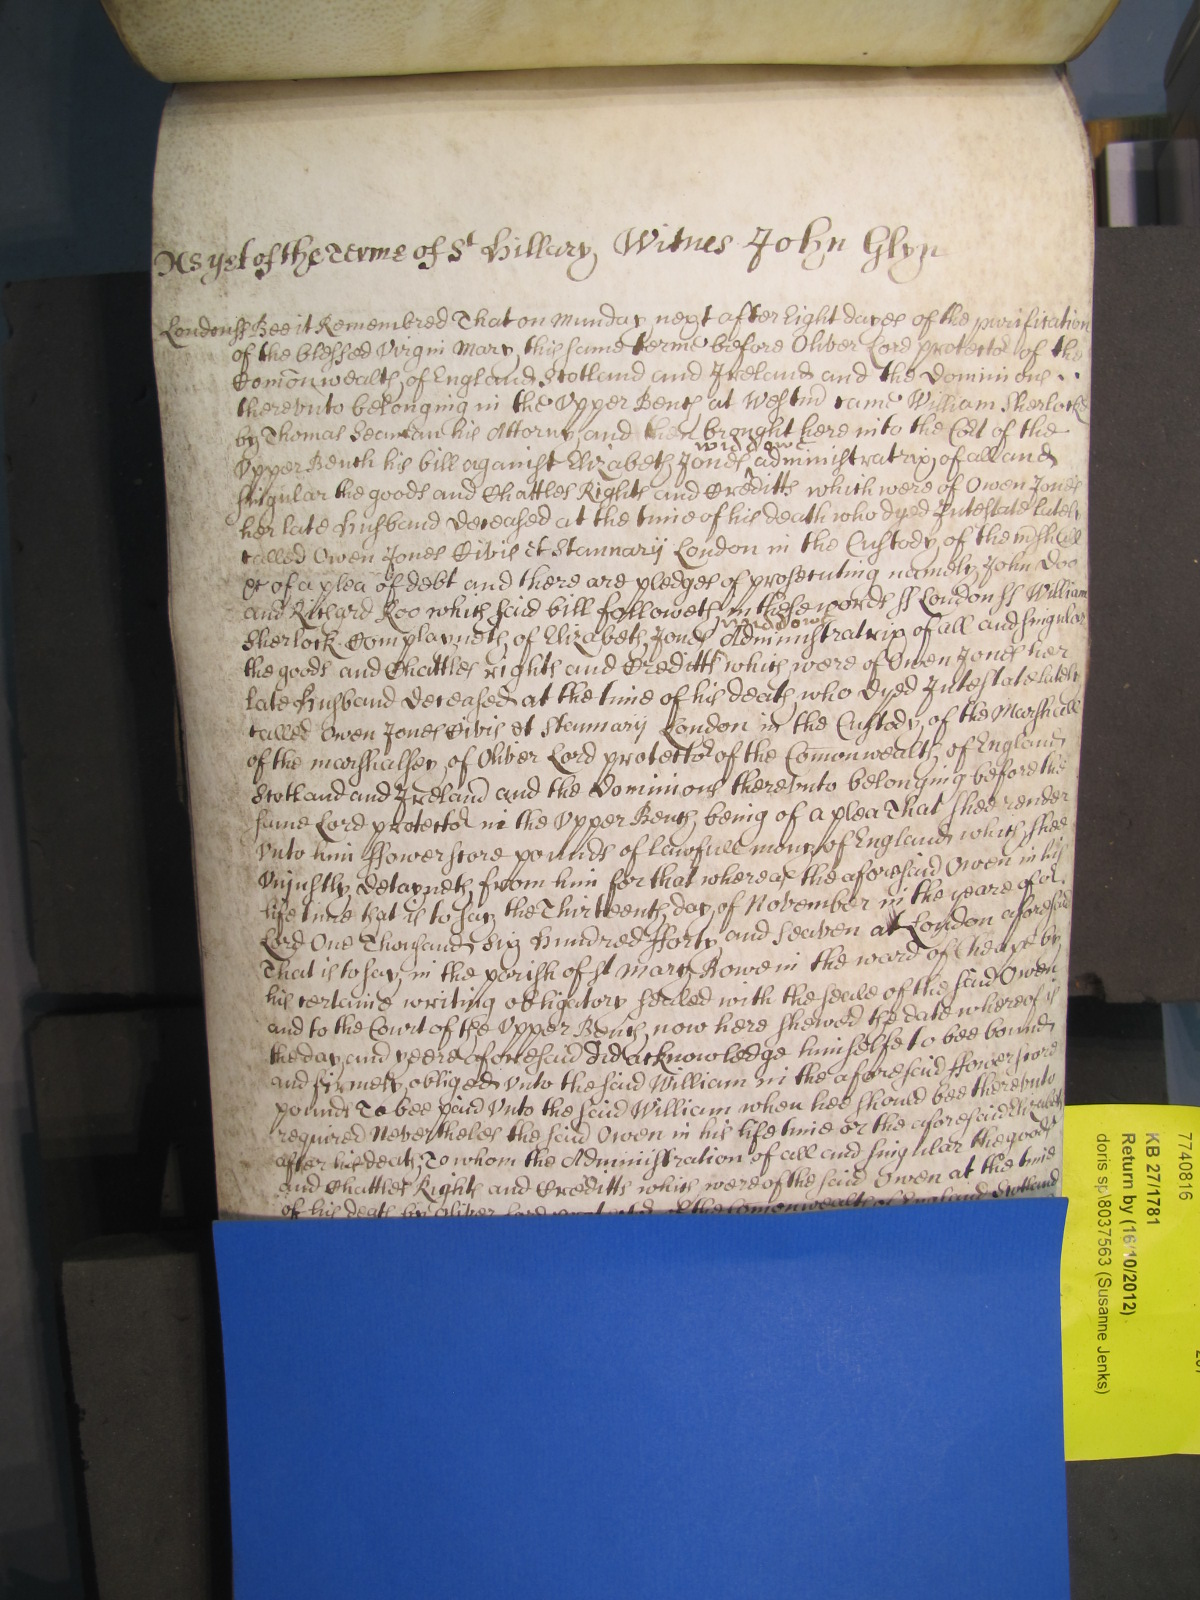 As yet of the Terme of St Hillary Witnes John Glyn
London ss Bee it Remembred That on Munday next after Eight dayes of the purification
of the blessed Virgin Mary this same terme before Oliver Lord protector of the
Comonwealth of England Scotland and Ireland and the Dominions
therevnto belonging in the Vpper Bench at Westm came William Sherlocke
by Thomas his Attorny and then brought here into the Cort of the
widdowe
Vpper Bench his bill against Elizabeth Jones administratrix of all and
singular the goods and Chattles Rights and Creditts which were of Owen Jones
her late husband deceased at the time of his death who dyed Intestate lately
called Owen Jones Civis et Stannarij London in the Custody of the mshall
&c of a plea of debt and there are pledges of prosecuting namely John Doo
and Richard Roo which said bill followeth in these words ss London ss William
widdowe
Sherlock Complayneth of Elizabeth Jones Administratrix of all and singular
the goods and Chattles Rights and Creditts which were of Owen Jones her
late husband deceased at the time of his death who dyed Intestate lately
called Owen Jones Civis et Stannarij London in the Custody of the Marshall
of the marshalsey of Oliver Lord protector of the Comonwealth of England
Scotland and Ireland and the Dominions therevnto belonging before the
same Lord protector in the Vpper Bench being of a plea That shee render
vnto him ffowerscore pounds of lawfull mony of England which shee
Vnjustly detayneth from him for that whereas the aforesaid Owen in his
life time that is to say the Thirteenth day of November in the yeare of or
Lord One Thousand Six hundred fforty and Seaven at London aforesaid
That is to say in the parish of St Mary Bowe in the ward of Cheape by
his certaine writing obligatory sealed with the seale of the said Owen
and to the Court of the Vpper Bench now here shewed the date whereof is
the day and yeere aforesaid did acknowledge himselfe to bee bound
and firmely obliged vnto the said William in the aforesaid ffowerscore
pounds To bee paid vnto the said William when hee should bee therevnto
required Neverthelesse the said Owen in his life time or the aforesaid Elizabeth
after his death To whom the Administration of all and singular the goods
and Chattles Rights and Creditts which were of the said Owen at the time
of his death by Oliver Lord protector of the Comonwealth of England Scotland
7740816
KB 27/1781
Return by (16/10/2012)
doris sp\8037563 (Susanne Jenks)